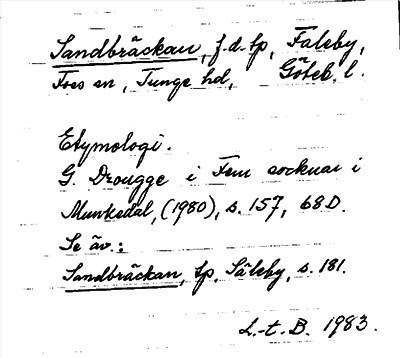 Sandbräckan, f.d. tp, Faleby,
Foss sn, Tunge hd, Göteb. l.
Etymologi.
G. Drougge i Fem socknar i
Munkedal, (1980), s. 157, 68D.
Se äv.:
Sandbräckan, tp, Säleby, s. 181.
L.-t. B. 1983.